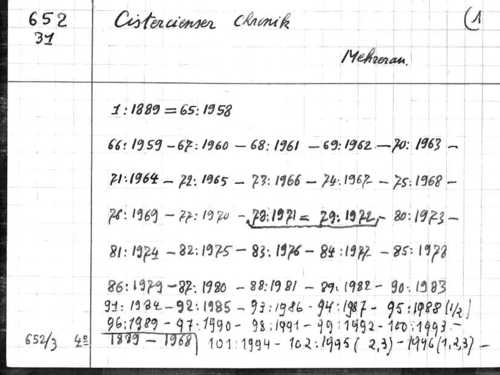 652 Cistercienser Chronik (1
31
Mehrerau.
1:1889 = 65:1958
66:1959 - 67:1960 - 68:1961 - 69:1962 - 70:1963 -
71:1964 - 72:1965 - 73:1966 - 74:1967 - 75:1968 -
76:1969 - 77:1970 - 78:1971 = 79:1972 - 80:1973 -
81:1974 - 82:1975 - 83:1976 - 84:1977 - 85:1978
86:1979 - 87:1980 - 88:1981 - 89:1982 - 90:1983
91:1984 - 92:1985 - 93:1986 - 94:1987 - 95:1988 (1/2)
96:1989 - 97:1990 - 98:1991 - 99:1992 - 100:1993 -
652/3 4º 1889 - 1968 101:1994 - 102:1995 (2,3) - 1996 (1,2,3) -